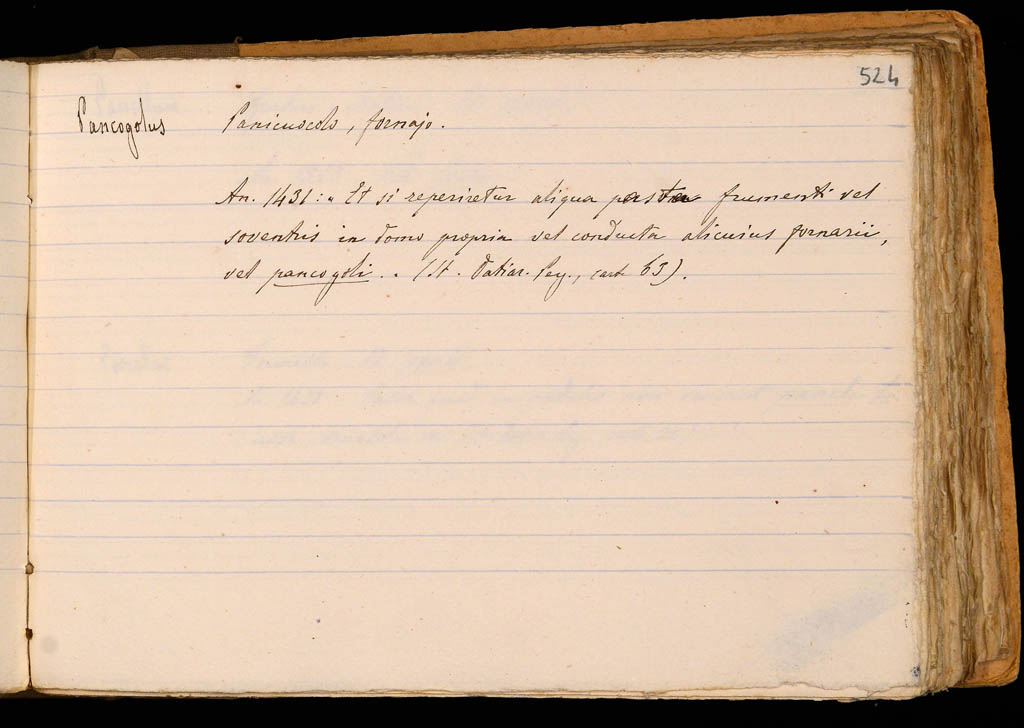 524
Pancogolus Panicuocolo, fornajo.
An. 1431: " Et si reperiretur aliqua pasta frumenti vel
soventris in domo propria vel conducta alicuius fornarii,
vel pancogoli. " (St. Datiar. Reg., cart. 63).